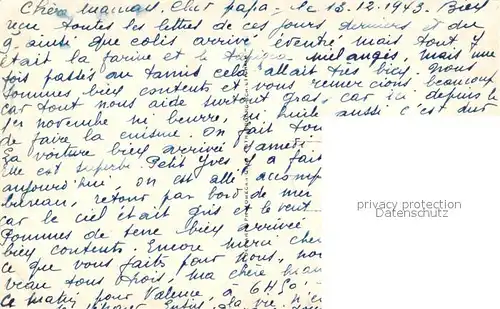 Chère maman, Cher papa - le 13.12.1943. Bien
reçu toutes les lettres de ces jours derniers et du
9. ainsi que colis arrivé éventré, mais tout y
était la farine et le mélangés, mais une
fois passés au tamis cela allait très bien. nous
sommes bien contents et vous remercions beaucoup
car tout nous aide surtout gras, car ici depuis le
1er novembre ni beurre, ni huile aussi c'est dur
de faire la cuisine. On fait
La voiture bien arrivée samedi
Elle est superbe. Petit Yves a fait
aujourd'hui, on est allé
bureau, retour par bord de mer
car le ciel était gris et le vent
Pommes de terre bien arrivée
bien contents. Encore merci
ce que vous faites pour nous,
tous trois, ma chère
Ce matin pour Valence, à 6H50,
la vie
privacy protection
Datenschutz